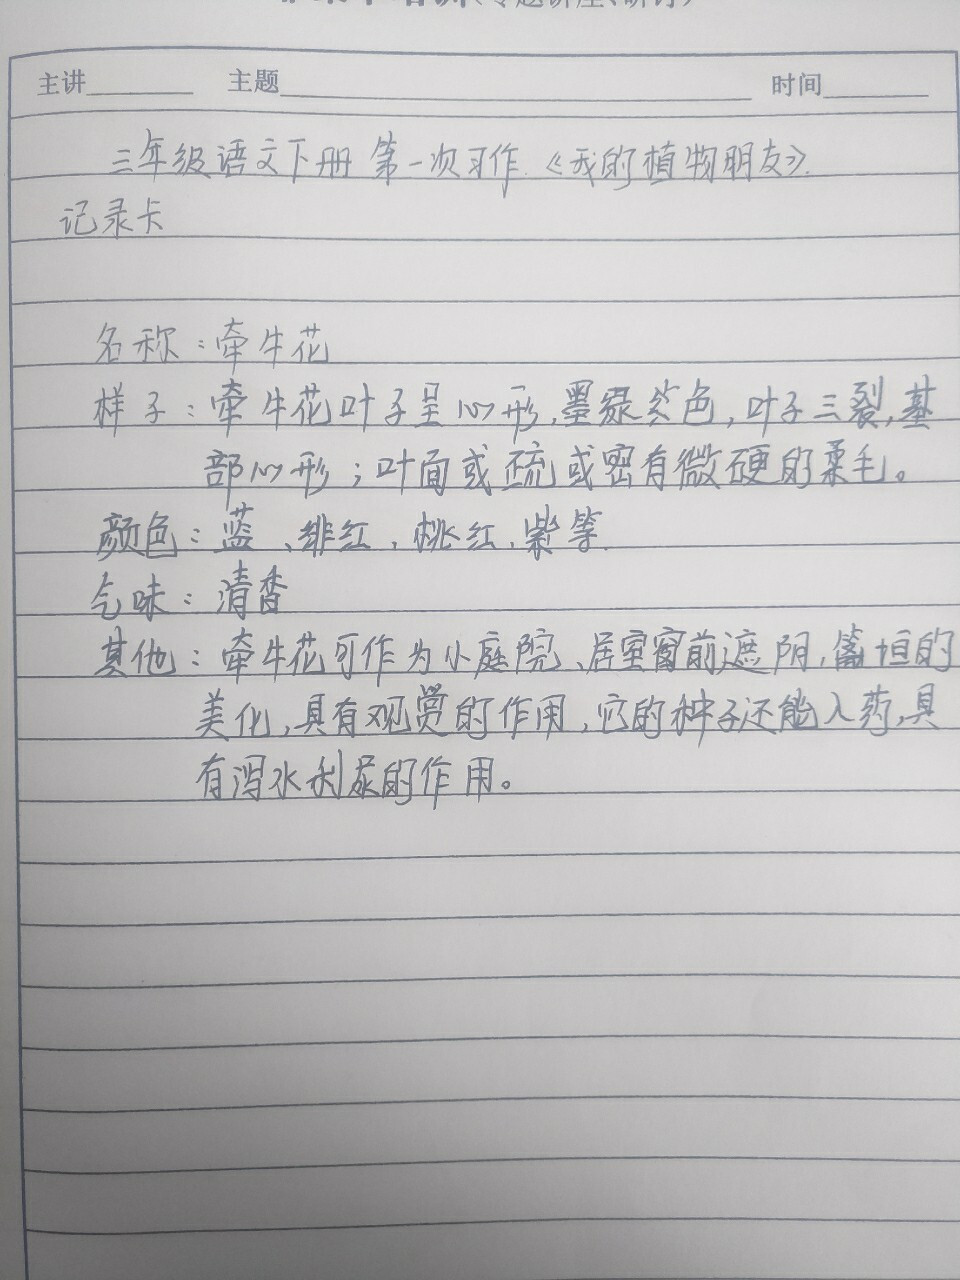 (专题讲座、研讨)
主讲 主题 时间
三年级语文下册 第一次习作《我的植物朋友》.
记录卡
名称：牵牛花
样子：牵牛花叶子呈心形,墨绿色,叶子三裂,基
部心形；叶面或疏或密有微硬的柔毛。
颜色：蓝、绯红,桃红,紫等.
气味：清香
其他：牵牛花可作为小庭院、居室窗前遮阴,篱垣的
美化,具有观赏的作用,它的种子还能入药,具
有泻水利尿的作用。